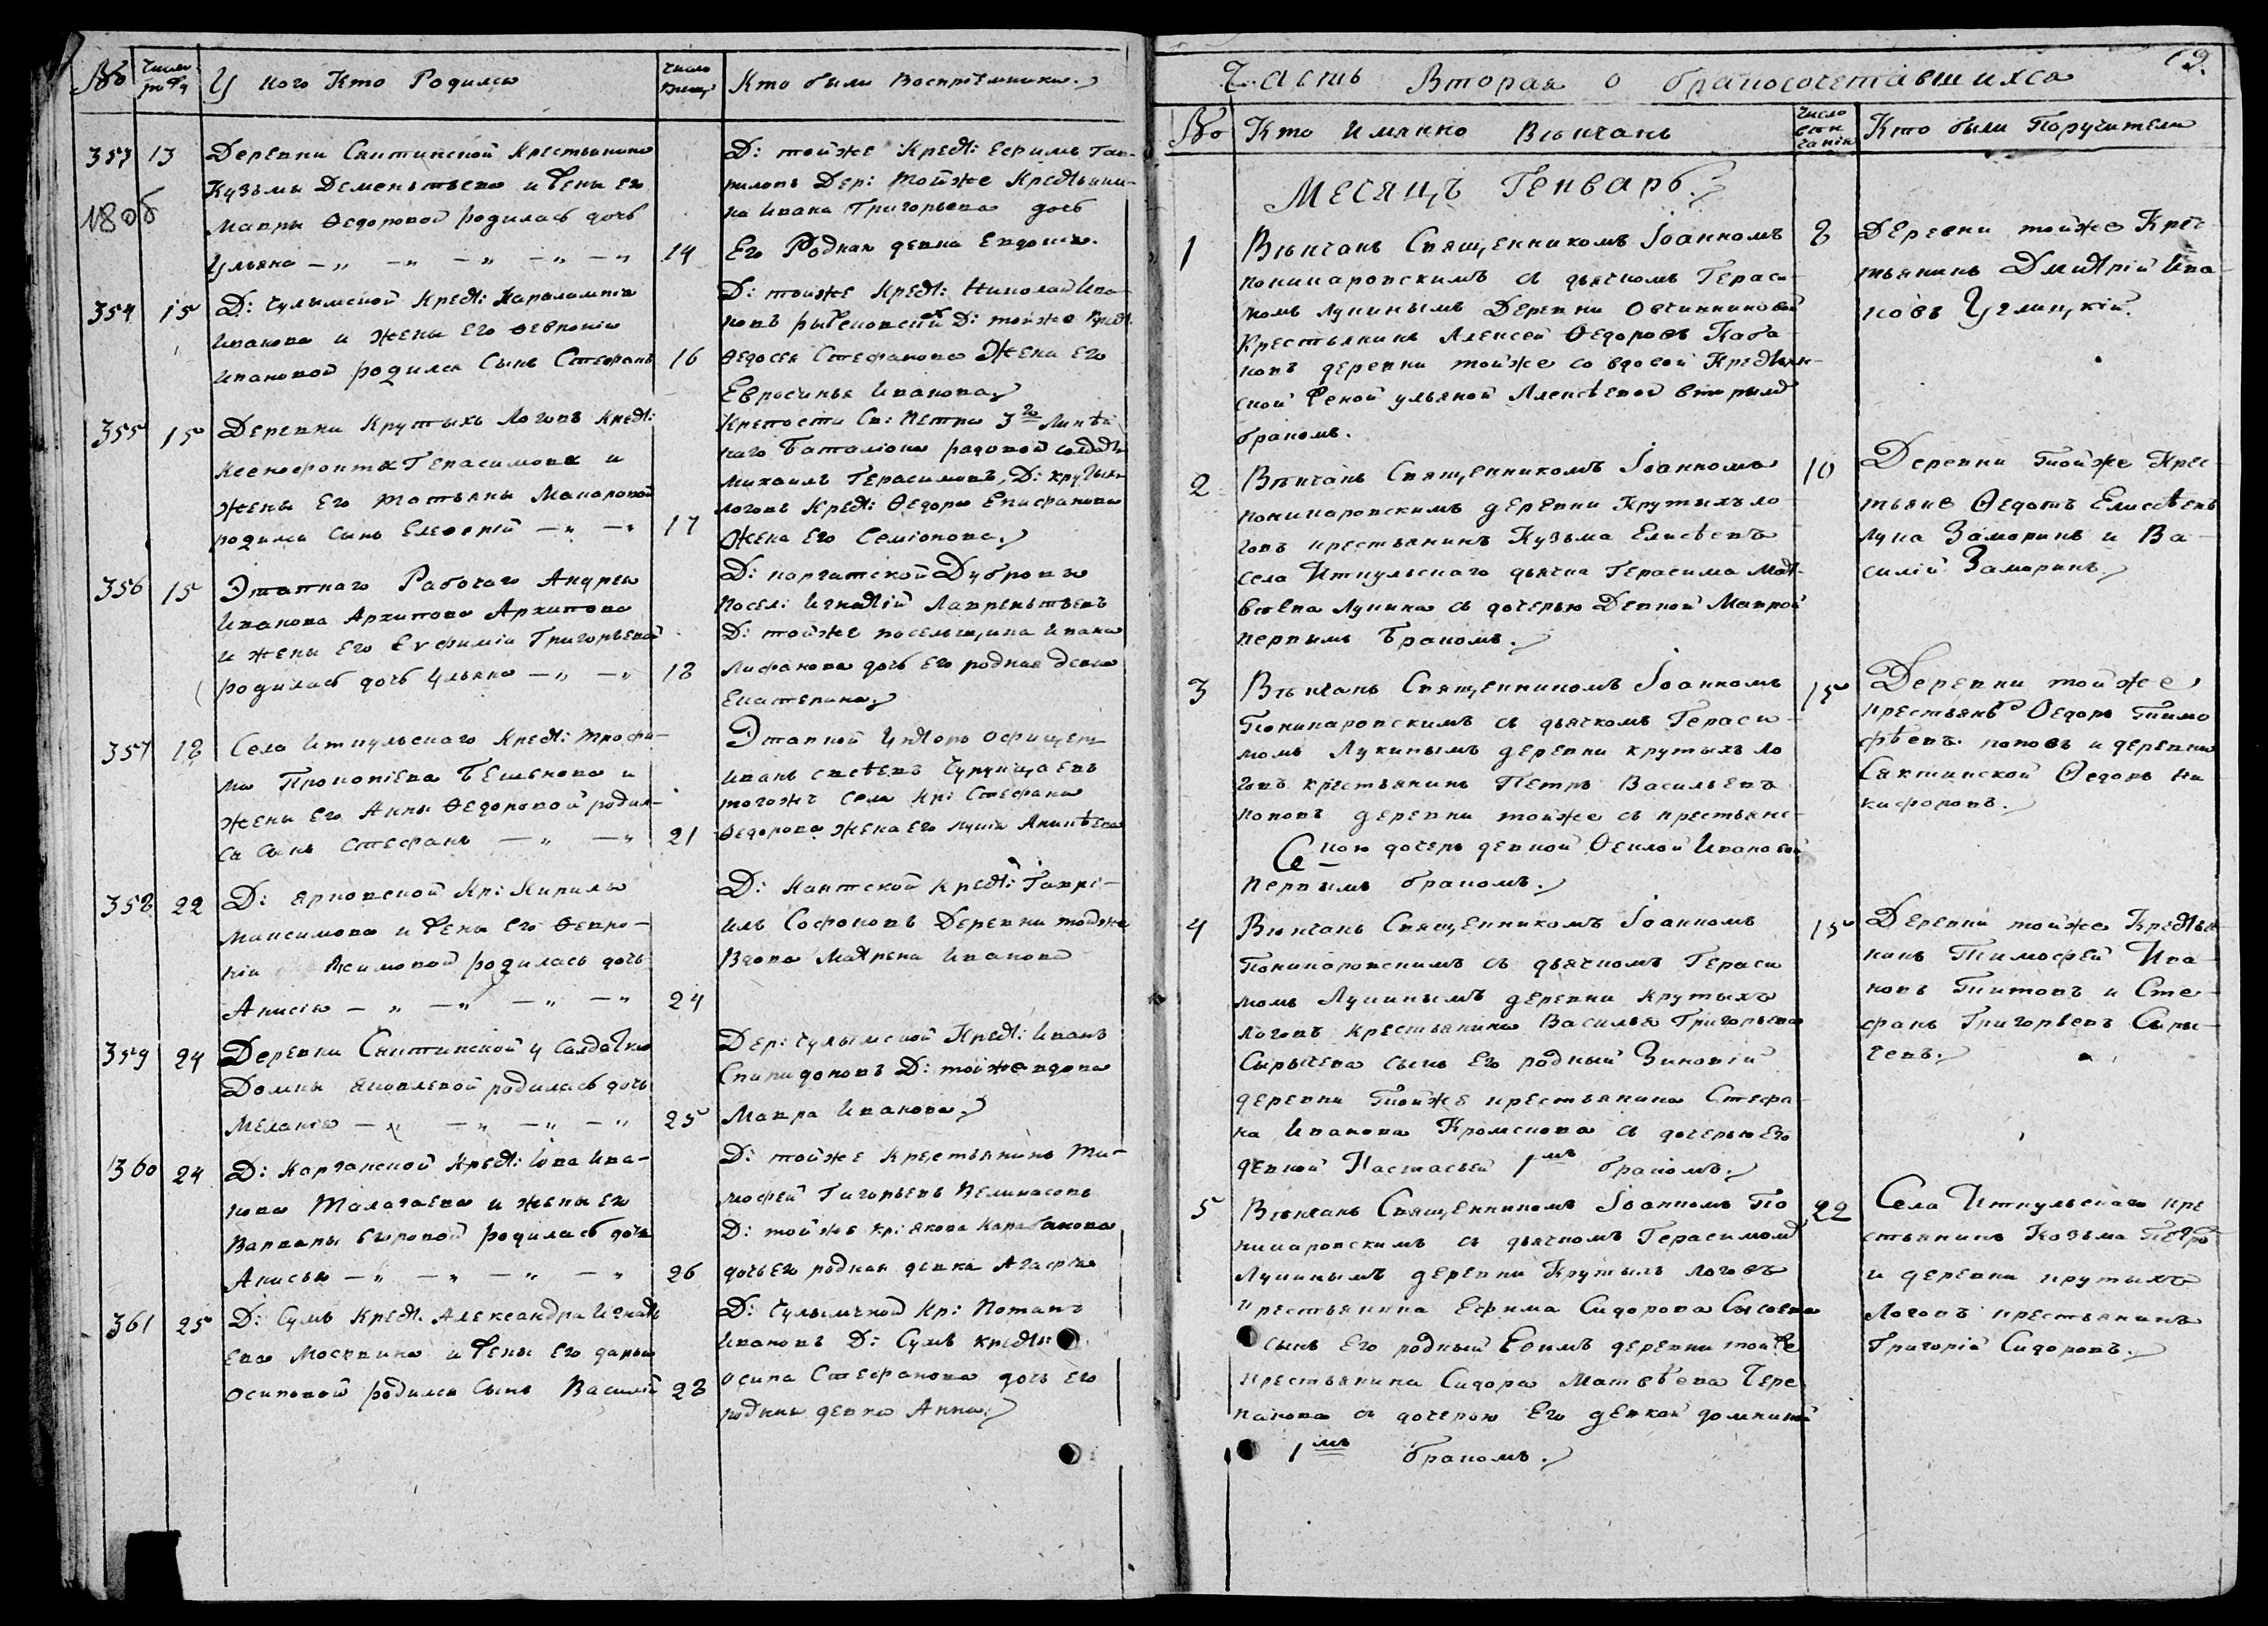 № Число рожд У кого Кто Родился Число крещ Кто были воспріѣмники.
353 13 Деревни Скитинской крестьянина
Кузьмы Дементьева и жены его
1806
Мавры Ѳедоровой родилась дочь
Ульяна 14
Д: тойже крест: Ефимъ Гав-
рилов Дер: тойже крестьяни-
на Ивана Григорьева дочь
Его Родная девка Евдокія.
354 15 Д: Чулымской крест: Харалампія
Иванова и жены его Ѳевроніи
Ивановой родился сынъ Стефанъ 16
Д: тойже крест: Николай Ива-
новъ Д: тойже крест:
Ѳедосея Стефанова Жена его
Евросинья Иванова
355 15 Деревни Крутыхъ Логовъ крест:
Ксенофонта Герасимова и
жены Его Татьяны Макаровой
родился сынъ Елевферій 17
крепости Св: Петра 3го Линѣй
наго Баталіона рядовой солдатъ
Михаилъ Герасимовъ, Д: крутыхъ
логовъ крест: Ѳедора Епифанова
Жена Его Семіонова
356 15 Этапнаго Рабочаго Андрея
Иванова Архипова Архипова
и жены Его Евфиміи Григорьевой
родилась дочь Ульяна 18
Д: каргатской Дубровы
посел: Игнатій Лаврентьевъ
Д: тойже поселыцика Ивана
Лифанова дочь его родная девка
Екатерина
357 18 Села Иткульскаго крест: Трофи-
ма Прокопіева Бешенова и
жены Его Анны Ѳедоровой родил-
ся сынъ Стефанъ 21
Этапной Офицеръ
Иванъ
тогожъ села кр: Стефана
Ѳедорова жена его
358 22 Д: Ярковской кр: Кирилы
Максимова и жены Его Февро-
ніи Якимовой родилась дочь
Анисія 24
Д: Каитской крест: Гаврі-
илъ Софоновъ Деревни тойже
Вдова Матрена Иванова
359 24 Деревни Скитинской у солдатки
Домны Яковлевой родилась дочь
Меланія 25
Дер: Чулымской крест: Иванъ
Спиридоновъ Д: тойже вдова
Мавра Иванова
360 24 Д: Карганской крест: Іова Ива-
нова Талагаева и жены его
Варвары Егоровой родилась дочь
Анисья 26
Д: тойже крестьянинъ Ти-
мофей Григорьевъ Велижасовъ
Д: тойже кр: Якова Карабанова
дочь его родная девка Агафья
361 25 Д: Сумъ крест: Александра Игнать
ева Москвина и жены его Дарьи
Осиповой родился сынъ Василій 28
Д: Чулымской кр: Потапъ
Ивановъ Д: Сумъ крест:
Осипа Стефанова дочь его
родная девка Анна
19.
Часть Вторая о бракосочетавшихся
№ Кто имянно Вѣнчанъ Число вѣнчанія Кто были Поручители
Месяцъ Генварь
1 Вѣнчанъ Священникомъ Іоанномъ 8
Поникаровскимъ съ дьячкомъ Гераси-
момъ Лукинымъ Деревни Овчинниковой
крестьянинъ Алексей Ѳедоровъ Каба-
ковъ деревни тойже со вдовой крестьян-
ской женой Ульяной Алексѣевой вторымъ
бракомъ.
Деревни тойже Крес-
тьянинъ Дмитрій Ива-
новъ Углицкій
2 Вѣнчанъ Священникомъ Іоанномъ 10
Поникаровскимъ деревни Крутыхъ ло
говъ крестьянинъ Кузьма Елисѣевъ
села Иткульскаго дьячка Герасима Мат-
вѣева Лукина съ дочерью Девкой Маврой
первымъ бракомъ.
Деревни Тойже Крес-
тьяне Ѳедотъ Елисѣевъ
Лука Заморинъ и Ва-
силій Заморинъ
3 Вѣнчанъ Священникомъ Іоанномъ 15
Поникаровскимъ съ дьячкомъ Гераси-
момъ Лукинымъ деревни крутыхъ ло
говъ крестьянинъ Петръ Васильевъ
поповъ деревни тойже съ крестьянс-
кою дочерю девкой Ѳеклой Ивановой
первымъ бракомъ.
Деревни тойже
крестьянъ Ѳедоръ Тимо
фѣевъ поповъ и деревни
Скитинской Ѳедоръ Ни
кифоровъ.
4 Вѣнчанъ Священникомъ Іоанномъ 15
Поникаровскимъ съ дьячкомъ Гераси
момъ Лукинымъ деревни крутыхъ
логовъ крестьянина Василья Григорьева
Сырычева сынъ Его родный Зиновій
деревни Тойже крестьянина Стефа-
на Иванова Кромскова съ дочерью его
девкой Настасьей 1мъ бракомъ.
Деревни тойже Крестья
нинъ Тимофей Ива-
новъ Титовъ и Сте-
фанъ Григорьевъ Сыры-
чевъ.
5 Вѣнчанъ Священникомъ Іоанномъ По 22
никаровскимъ съ дьячкомъ Герасимомъ
Лукинымъ деревни Крутыхъ логовъ
крестьянина Ефима Сидорова Сысоева
сынъ Его родный Ефимъ деревни тойже
крестьянина Сидора Матвѣева Чере
панова съ дочерью Его девкой
1мъ бракомъ.
Села Иткульскаго кре
стьянинъ Козьма Петро
и деревни крутыхъ
логовъ крестьянинъ
Григорій Сидоровъ.